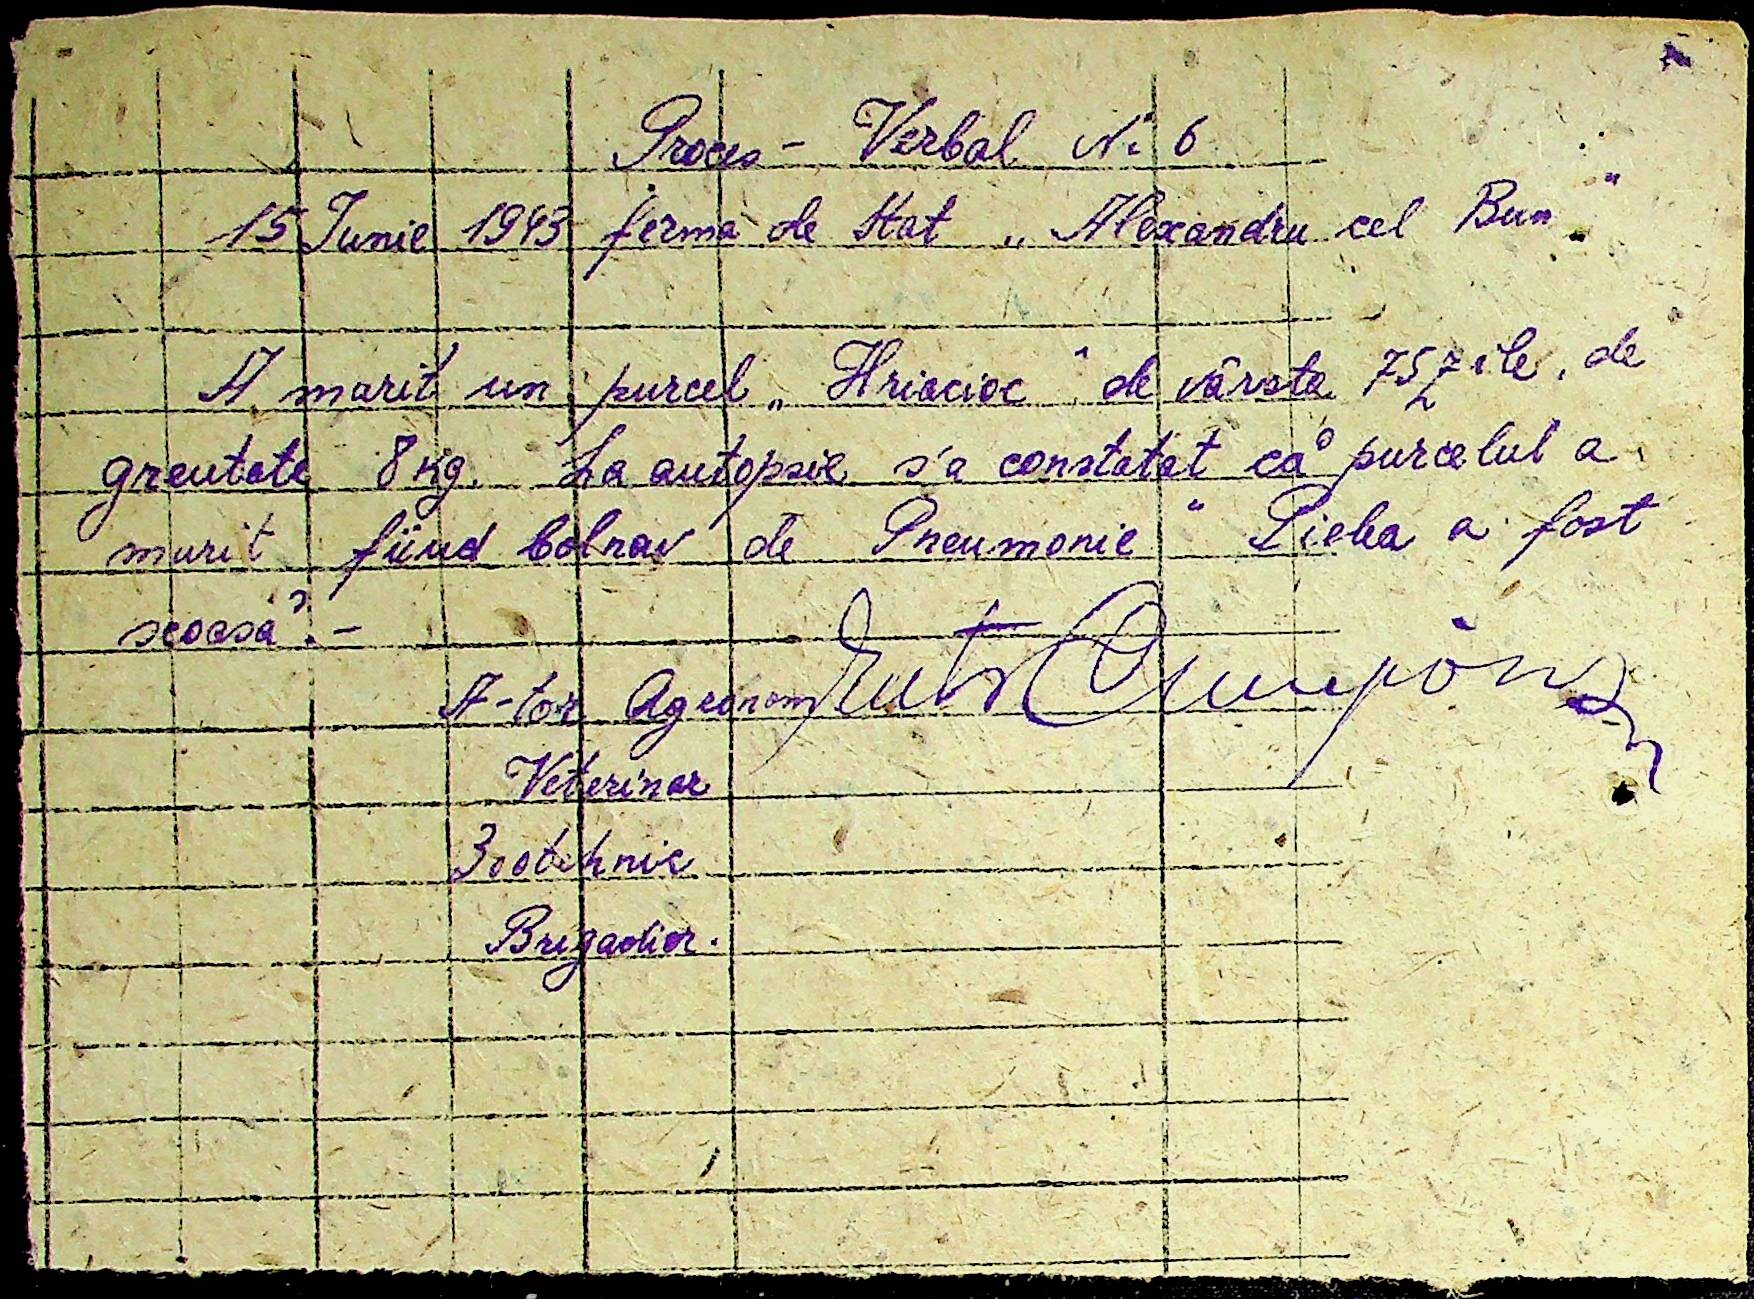 Proces - Verbal N: 6
15 Iunie 1943 ferma de Stat „Alexandru cel Bun"
A marit un purcel „Hriacioc" de vârsta 75 zile, de
greutate 8 kg. La autopsie s'a constatat că purcelul a
murit fiind bolnav de Pneumonie" Pielea a fost
scoasă. -
A-tor Agronom
Veterinar
Zootehnic
Brigadier.